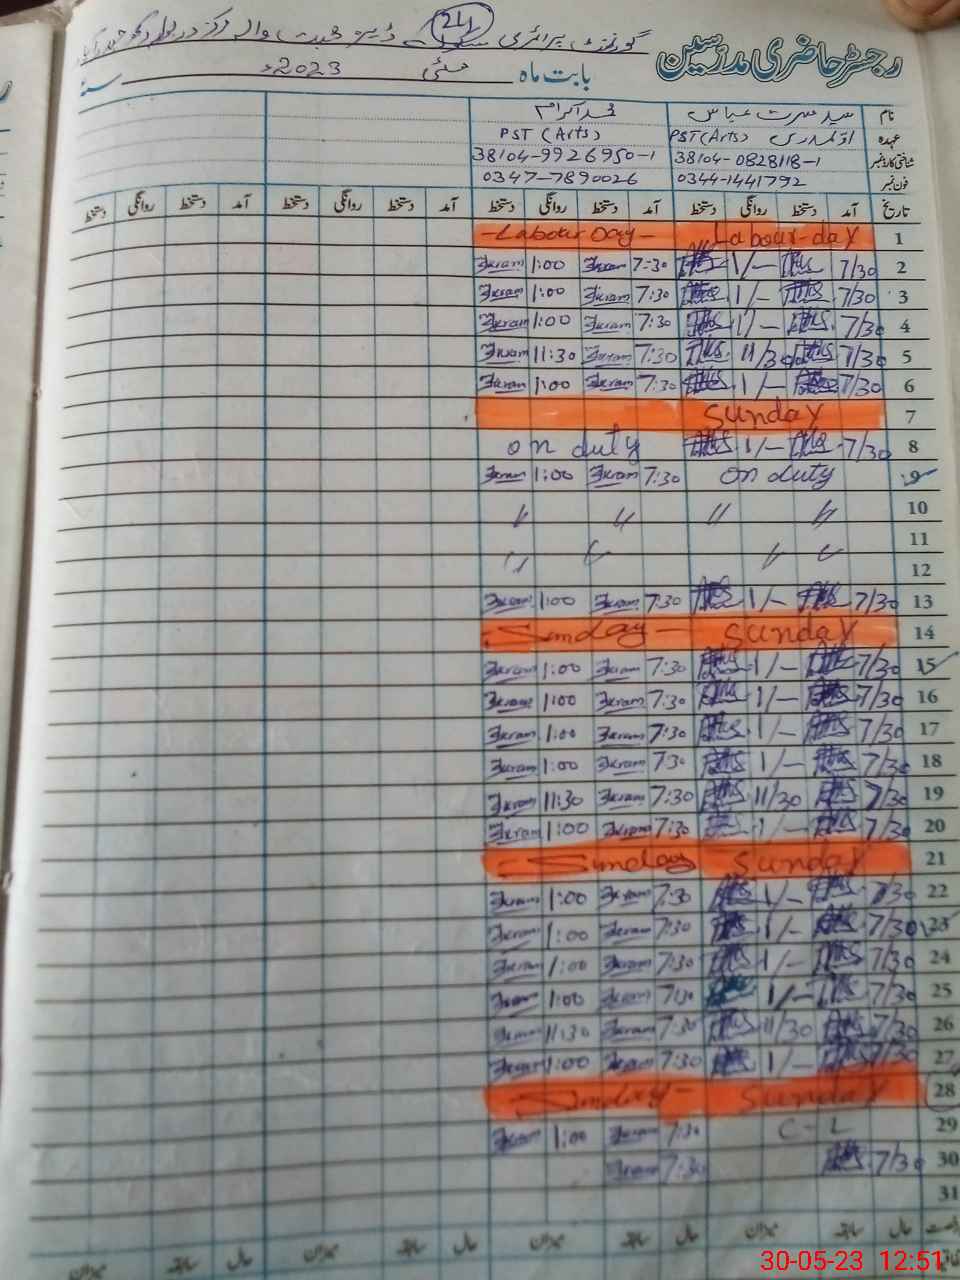 گورنمنٹ پرائمری
24
رجسٹر حاضری مدرسین
بابت ماہ مئی 2023ء سنہ
نام سید مسرت عباس محمد اکرام
عہدہ PST (Arts) PST (Arts)
شناختی کارڈ نمبر 38104-0828118-1 38104-9926950-1
فون نمبر 0344-1441792 0347-7890026
تاریخ آمد دستخط روانگی دستخط آمد دستخط روانگی دستخط آمد دستخط روانگی دستخط آمد دستخط روانگی دستخط
1 Labour-day -Labour Day-
2 7/30 1/- 7:30 Ikram 1:00 Ikram
3 7/30 1/- 7:30 Ikram 1:00 Ikram
4 7/30 1/- 7:30 Ikram 1:00 Ikram
5 7/30 11/30 7:30 Ikram 11:30 Ikram
6 7/30 1/- 7:30 Ikram 1:00 Ikram
7 Sunday
8 7/30 1/- on duty
9 on duty 7:30 Ikram 1:00 Ikram
10 〃 〃 〃 〃
11
12
13 7/30 1/- 7:30 Ikram 1:00 Ikram
14 Sunday Sunday -
15 7/30 1/- 7:30 Ikram 1:00 Ikram
16 7/30 1/- 7:30 Ikram 1:00 Ikram
17 7/30 1/- 7:30 Ikram 1:00 Ikram
18 7/30 1/- 7:30 Ikram 1:00 Ikram
19 7/30 11/30 7:30 Ikram 11:30 Ikram
20 7/30 1/- 7:30 Ikram 1:00 Ikram
21 Sunday - Sunday
22 7/30 1/- 7:30 Ikram 1:00 Ikram
23 7/30 1/- 7:30 Ikram 1:00 Ikram
24 7/30 1/- 7:30 Ikram 1:00 Ikram
25 7/30 1/- 7:30 Ikram 1:00 Ikram
26 7/30 11/30 7:30 Ikram 11:30 Ikram
27 7/30 1/- 7:30 Ikram 1:00 Ikram
28 Sunday - Sunday -
29 C-L 7:30 Ikram 1:00 Ikram
30 7/30 7:30 Ikram
31
حال سابقہ میزان حال سابقہ میزان حال سابقہ میزان
30-05-23 12:51